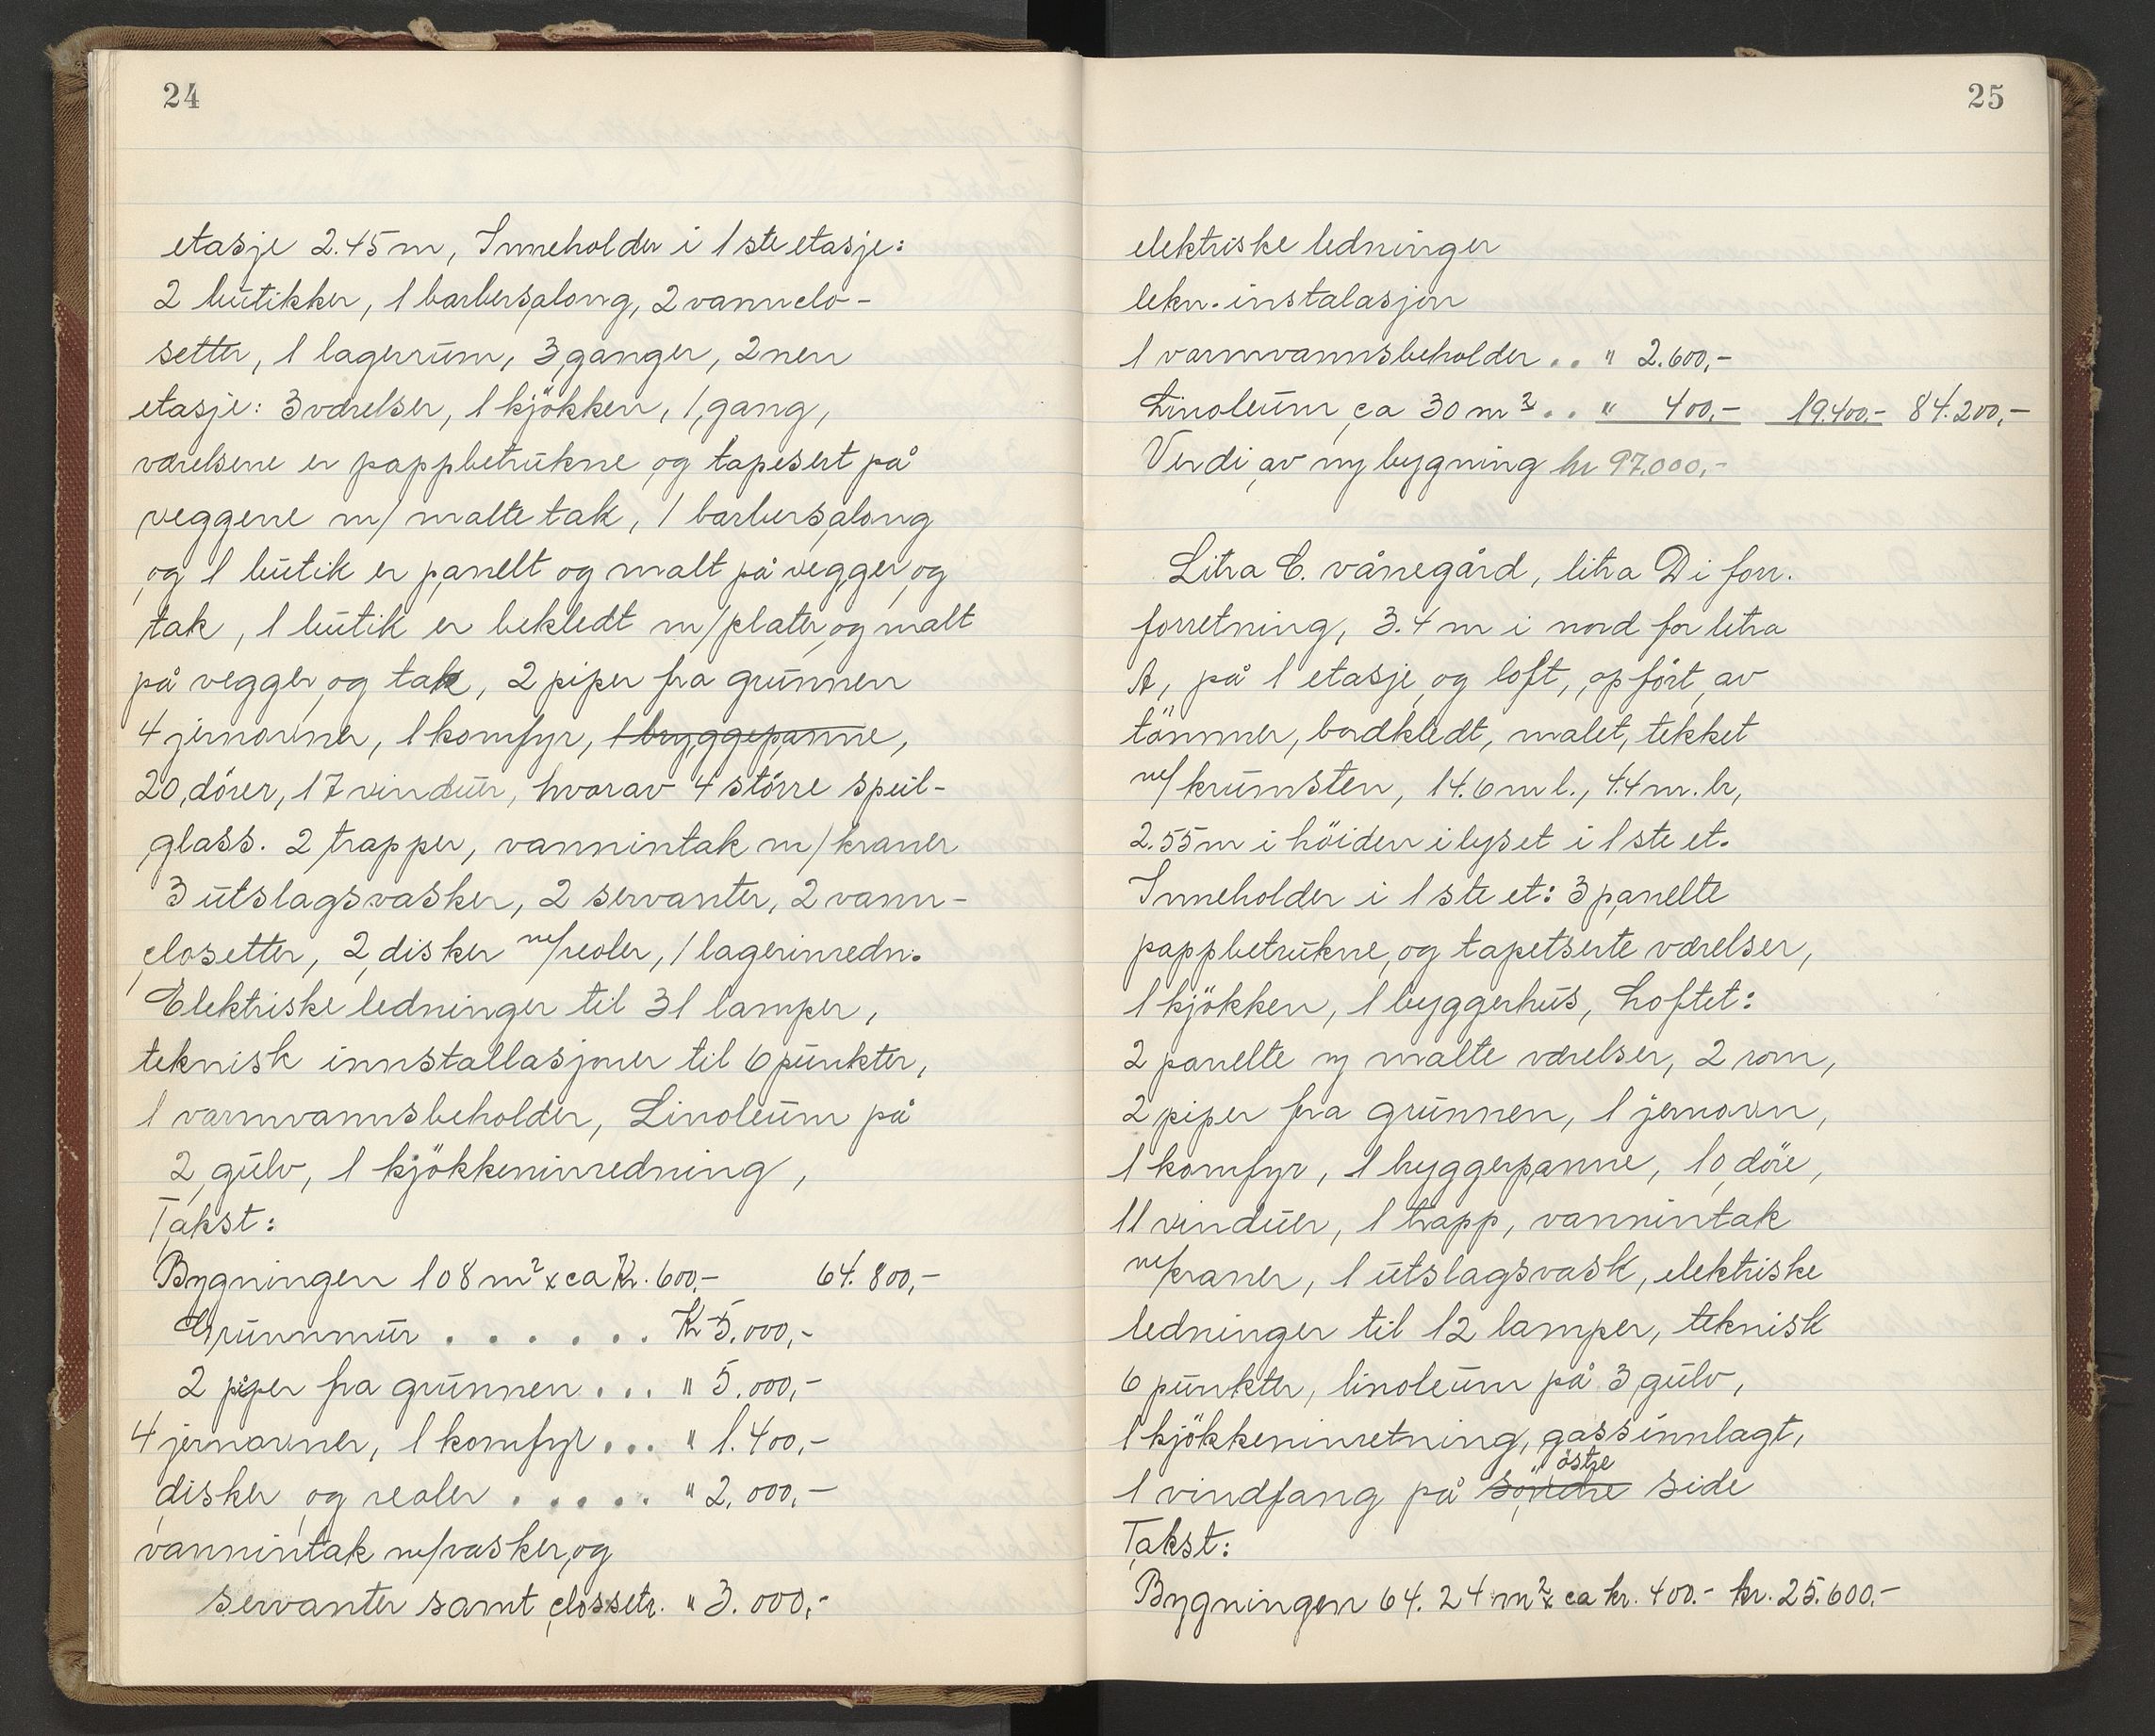 24
etasje 2.45 m, Inneholder i 1 ste etasje:
2 butikker, 1 barbersalong, 2 vannclo-
setter, 1 lagerrum, 3 ganger, 2 nen
etasje: 3 værelser, 1 kjökken, 1 gang,
værelsene er pappbetrukne og tapesert på
veggene m/ malte tak, 1 barbersalong
og 1 butik er panelt og malt på vegger og
tak, 1 butik er bekledt m/plater og malt
på vegger og tak, 2 piper fra grunnen
4 jernovner, 1 komfyr, 1 bryggepanne,
20 dörer, 17 vinduer, hvorav 4 större speil-
glass. 2 trapper, vannintak m/kraner
3 utslagsvasker, 2 servanter, 2 vann-
closetter, 2 disker m/reoler, 1 lagerinredn.
Elektriske ledninger til 31 lamper,
teknisk innstallasjoner til 6 punkter,
1 varmvannsbeholder, Linoleum på
2 gulv, 1 kjökkeninredning,
Takst:
Bygningen 108 m² x ca Kr. 600,- 64.800,-
Grunnmur . . . . . . Kr 5.000,-
2 piper fra grunnen . . . " 5.000,-
4 jernovner, 1 komfyr . . . " 1.400,-
disker og reoler . . . . . " 2.000,-
vannintak m/vasker og
servanter samt clossetr. " 3.000,-
25
elektriske ledninger
tekn. instalasjon
1 varmvannsbeholder . . " 2.600,-
Linoleum ca 30 m² . . " 400,- 19.400,- 84.200,-
Verdi av ny bygning kr 97.000,-
Litra E. vånegård, litra D i forr.
forretning, 3.4 m i nord for litra
A, på 1 etasje og loft, opfört av
tömmer, bordkledt, malet, tekket
m/krumsten, 14.6 m l., 4.4 m. br,
2.55 m i höiden i lyset i 1 ste et.
Inneholder i 1 ste et: 3 panelte
pappbetrukne og tapetserte værelser,
1 kjökken, 1 byggerhus, Loftet:
2 panelte og malte værelser, 2 rom,
2 piper fra grunnen, 1 jernovn,
1 komfyr, 1 byggerpanne, 10 döre,
11 vinduer, 1 trapp, vannintak
m/kraner, 1 utslagsvask, elektriske
ledninger til 12 lamper, teknisk
6 punkter, linoleum på 3 gulv,
1 kjökkeninretning, gass innlagt,
1 vindfang på söndre östre side
Takst:
Bygningen 64.24 m² x ca kr. 400.- kr. 25.600.-